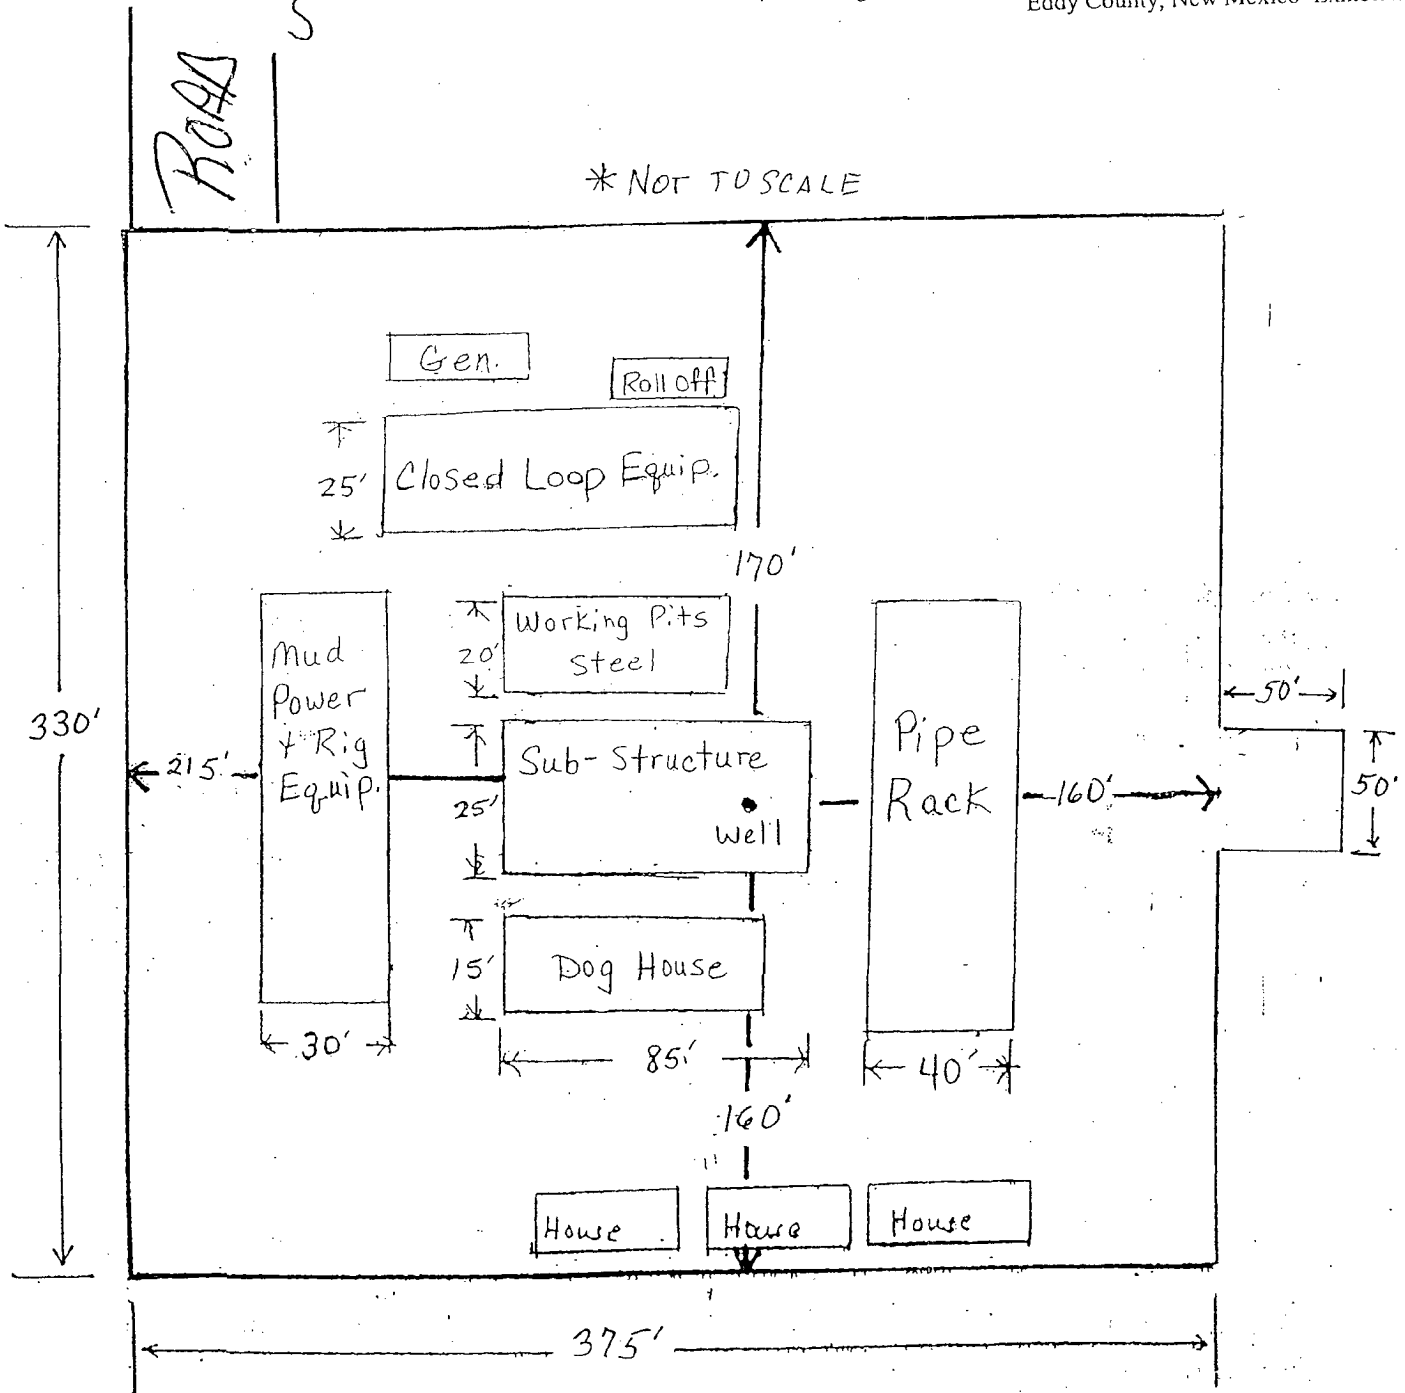 Eddy County, New Mexico
S
ROAD
* NOT TO SCALE
Gen.
Roll off
25'
Closed Loop Equip.
170'
Working Pits
Steel
20'
Mud
Power
+ Rig
Equip.
330'
215'
Sub-Structure
25'
Well
Pipe
Rack
160'
50'
50'
15'
Dog House
30'
85'
40'
160'
House
House
House
375'